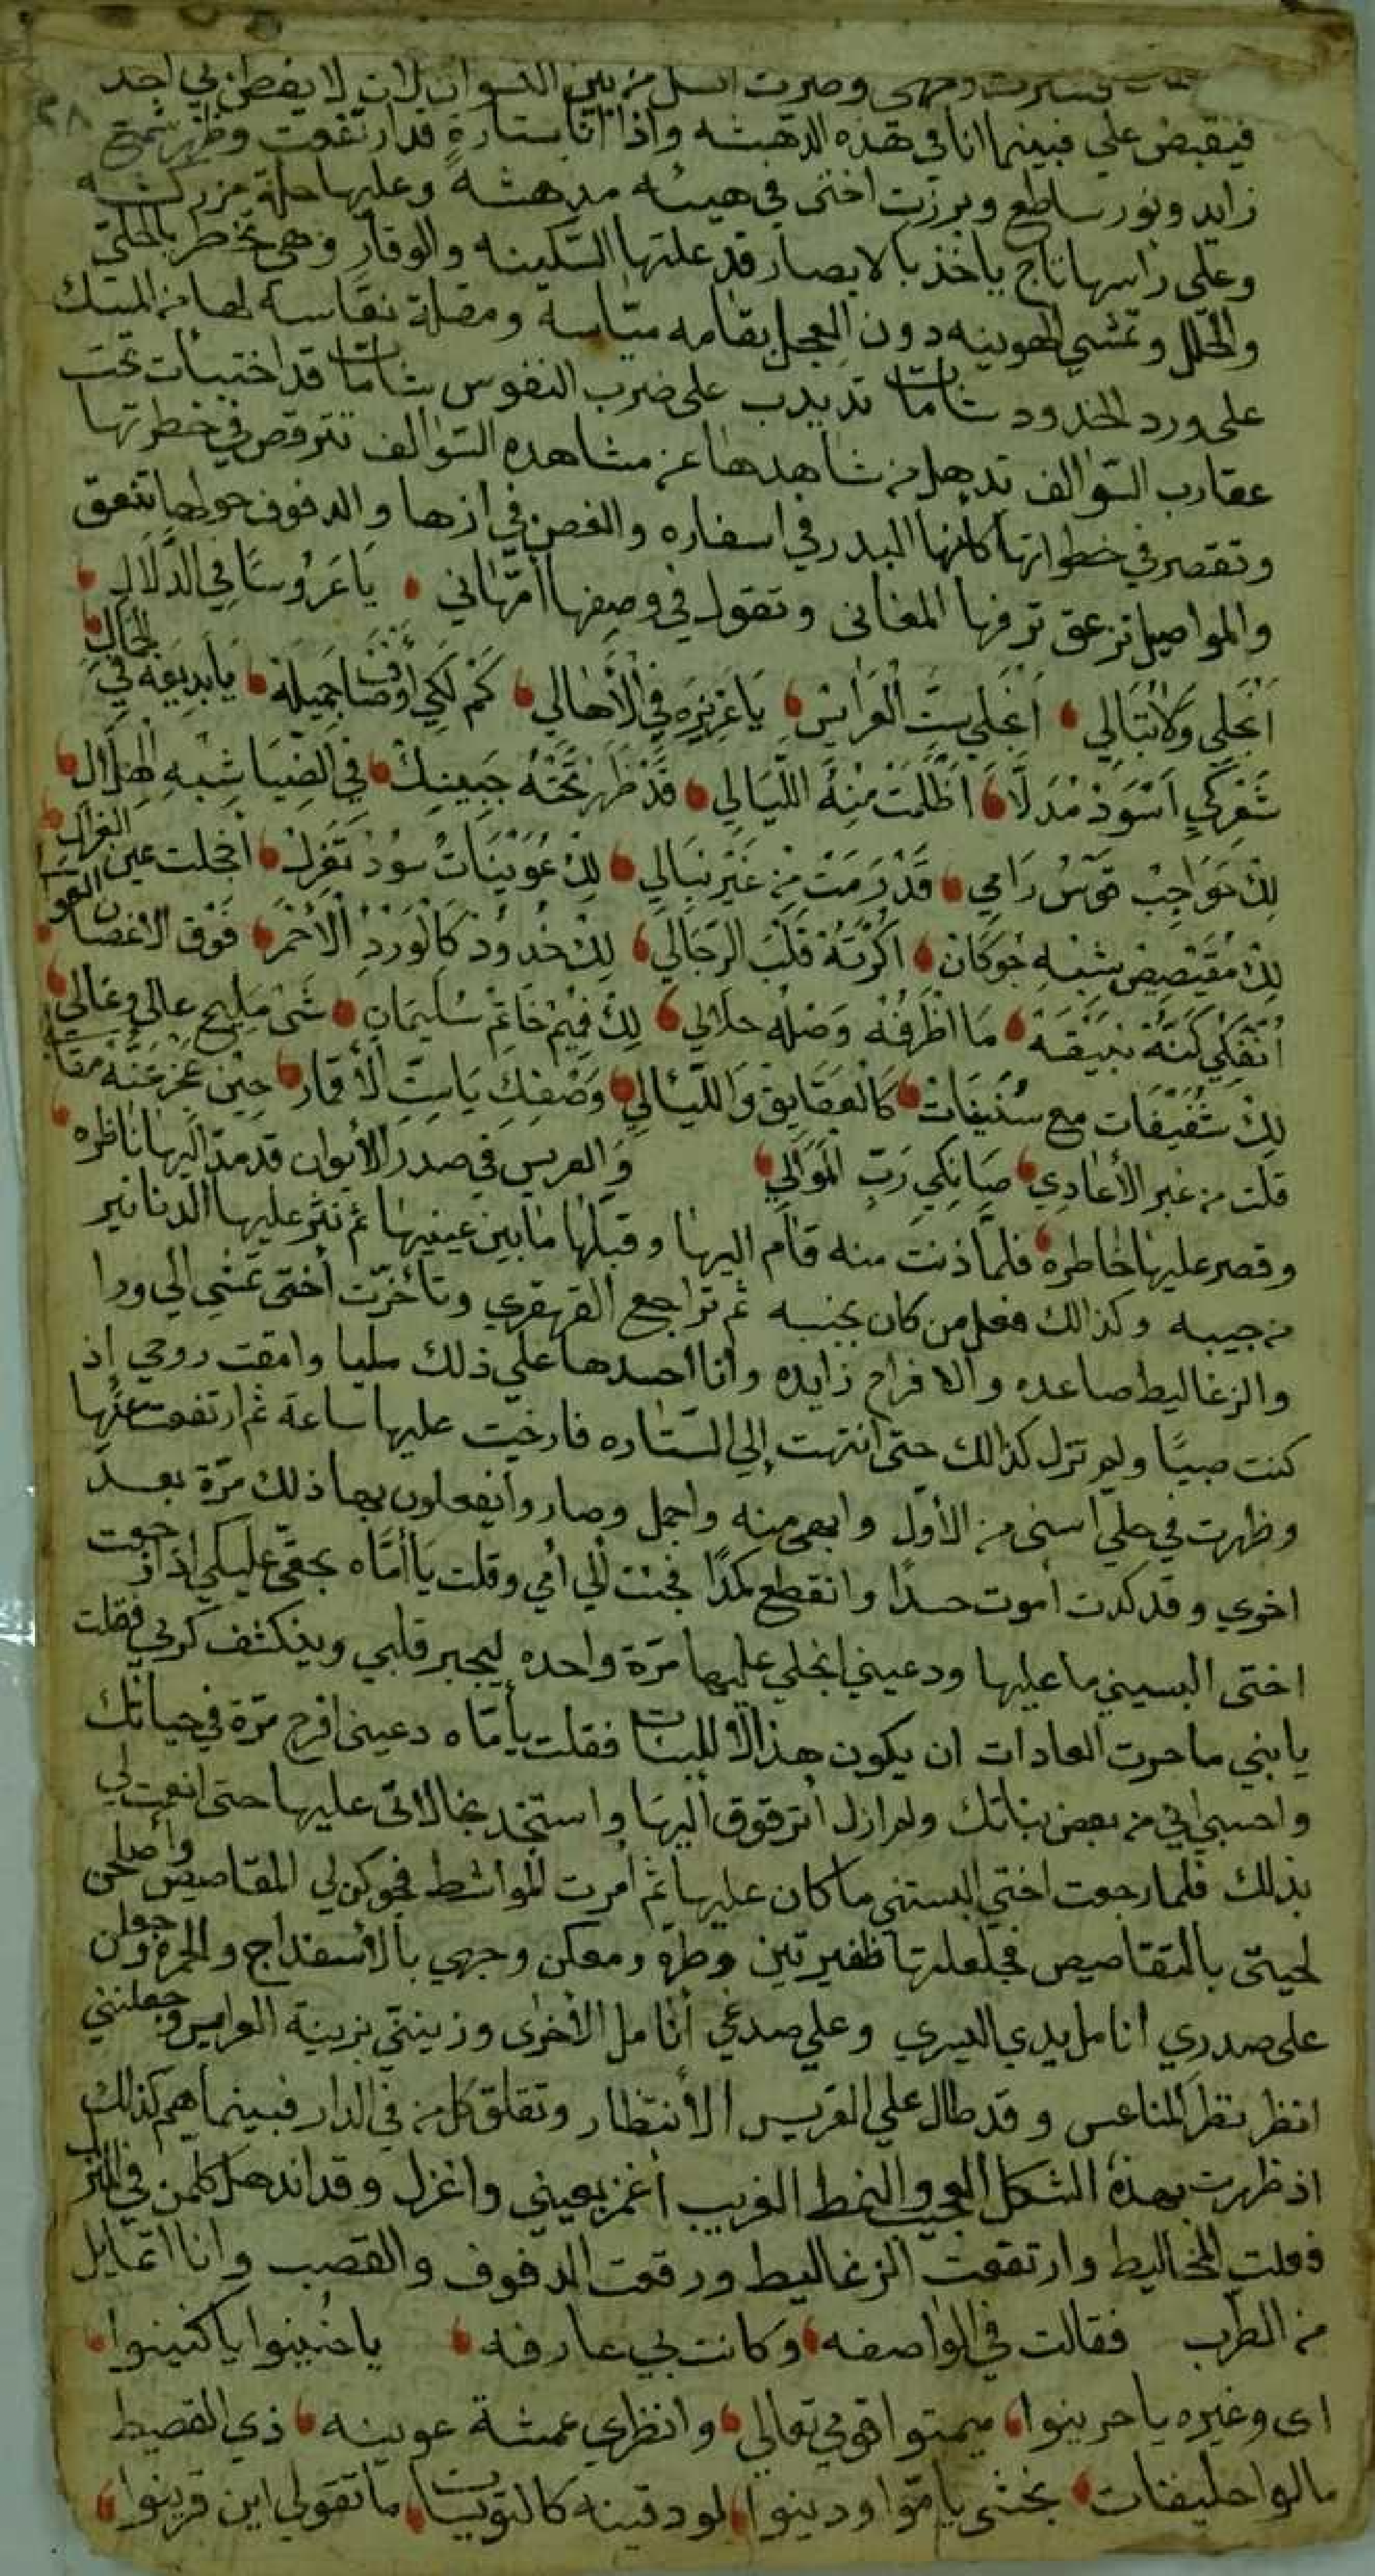 فسترت وجهي وصرت انسل من بين النسوان لان لا يفطن بي احد
٣٨
فيقبض علي فبينما انا في هذه الدهشه واذا انا بستارةٍ قد ارتفعت وظهر شمع
زايد ونور ساطع وبرزت اختى في هيئه مدهشه وعليها حلة مزركشه
وعلى راسها تاج ياخذ بالابصار قد علتها السكينه والوقار وهي تخطر بالحلي
والحلل وتمشي الهوينه دون العجل بقامه مياسة ومقلة نعاسة لها من المسك
على ورد الخدود شامات تدبدب على ضرب النفوس شامات قد اختبيات تحت
عقارب السوالف تدهل من شاهدها عن مشاهده السوالف تترقص في خطرتها
وتقصر في خطواتها كانها البدر في اسفاره والغصن في ازها والدفوف حولها تتعق
والمواصيل تزعق تزفها المغاني وتقول في وصفها امّهاني يَا عَرُوسًا في الدَّلَالِ
اَنجلي وَلَا تُبَالِي اَنجلي سِتِّ الْعَرَايسْ يَا عَزِيزَه في الْأَهَالي كَمْ لَكي أوصَافْ جَميلَهْ يَا بَدِيعَه فيِ الجَمَالِ
شَعْرِكي اَسْوَدْ مُدَلَّا اَظْلَمَتْ مِنْهُ اللَّيَالِي قَدْ ظَهَرْ تَحْتَهُ جَبِينِكْ في الضِيَا شِبْهِ الْهِلَالِ
لِكْ حَوَاجِبْ قوسْ رَامي قَدْ رَمَتْ مِنْ غَيْرِ نِبَالِي لِكْ عُوَيْنَاتْ سُودْ تَغزِلْ اخجلت عين الغزال
لِكْ مُقَيْصِيصْ شِبْهِ جُوكَانْ اكرتُهْ قَلْبَ الرّجَالِي لِكْ خدُودْ كَالْوَرْدِ الْأحْمَرْ فَوْقِ الْاغصَان العوالي
اَنْفِكي كَنَّهْ نبيقَهْ مَا اَظْرَفُهْ وَصْلُهْ حلالي لِكْ فميْمْ خَاتِمْ سُلَيمَانِ شَيْ مَليحْ عالي وغالي
لِكْ شُفَيْفَات مع سُنَيْنَاتْ كَالْعَقَايِقْ وَاللَّئَالي وَصْفِكِ يَا سِتِّ الأقمار حِين عَجز عَنّهْ مقالي
قلت من غبر الأعَادِي صَانِكي رَبِّ الْمَوَالي وَالعريس في صدر الأيوان قد مدّ اليها ناظره
وقصر عليها خاطره فلمّا دنت منه قام اليها وقبلها ما بين عينيها ثم نثر عليها الدنانير
من جيبه وكذالك فعل من كان بجنبه ثم تراجع القهقري وتأخرت أختى تمشي الي ورا
والزغاليط صاعده والافراح زايده وانا احسدها علي ذلك مليا وامقت روحي إذ
كنت صبيًا ولم تزل كذالك حتى انتهت إلي الستاره فارخيت عليها ساعة ثم ارتفعت عنها
وظهرت في حلي اسنى من الأوّل وابهى منه واجمل وصاروا يفعلون بها ذلك مرّة بعد
اخري وقد كدت أموت حسدًا وانقطع كمدًا فجئت الي أمي وقلت يا أمَّاه بحقي عليكي إذا رجعت
اختى البسيني ما عليها ودعيني انجلي عليها مرّة واحده لينجبر قلبي وينكشف كربي فقلت
يا بني ما جرت العادات ان يكون هذا الا للبنات فقلت يا أماه دعيني افرح مرّة في حياتك
واحسبي اني من بعض بناتك ولم ازل اترقوق اليها واستنجد بخالاتى عليها حتى انعمت لي
بذلك فلما رجعت اختى البستني ما كان عليها ثم أمرت المواشط فجوكن لي المقاصيص وأصلحن
لحيتى بالمقاصيص فجعلتها ظفيرتين وطره ومعكن وجهي بالأسفنداج والحمرة وجعلن
على صدري انامل يدي اليسري وعلي صدغي أنامل الأخرى وزينتي بزينة العرايس وجعلنني
انظر نظر المناعس وقد طال علي العريس الأنتظار وتقلق كل من في الدار فبينما هم كذالك
اذ ظهرت بهذه الشكل العجيب والنمط الغريب أغمز بعيني واغزل وقد اندهل كلمن في المنزل
فعلت المخاليط وارتفعت الزغاليط ورقعت الدفوف والقصب وانا اتمايل
من الطرب فقالت في الواصفه وكانت بي عارفه يا خنينوا يا كنينوا
اى وعيره يا حرينوا ميمتوا قومي تعالي وانظري عمشة عوينه ذي القصيط
مالوا حليفات بخشى يا مّوا ودينوا لو دقينه كالتويسات ما تقولي اين قرينوا